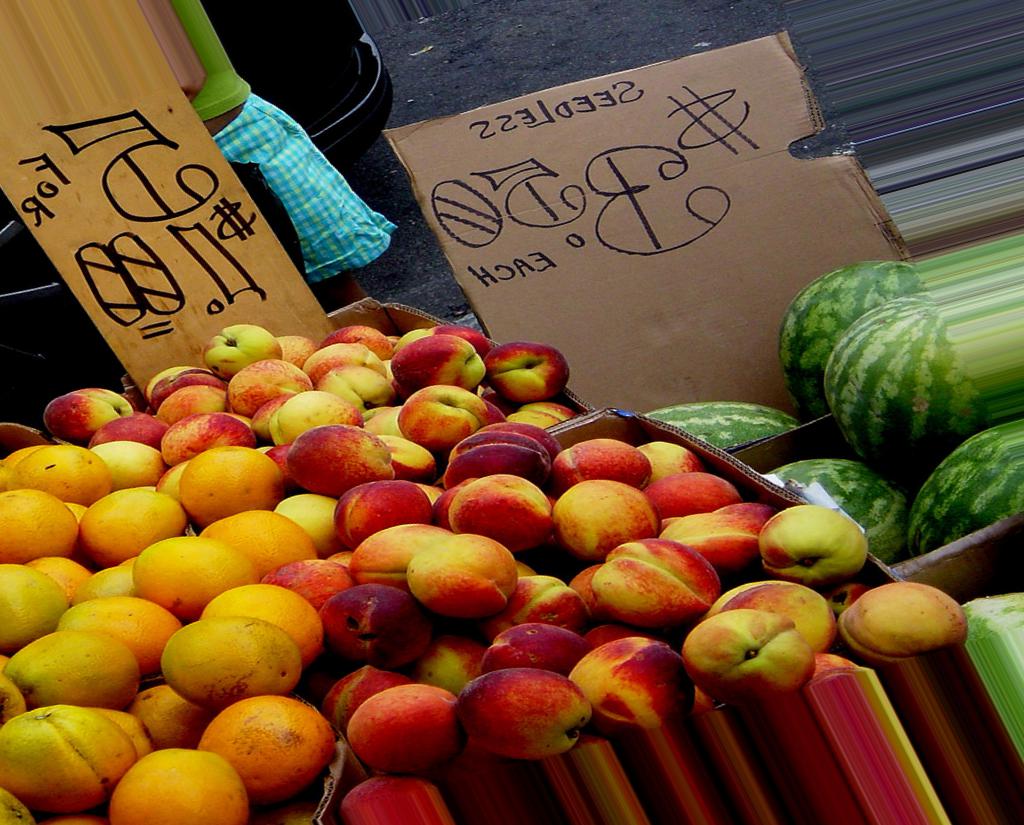 5 FOR
$1.00
SEEDLESS
$3.50
EACH